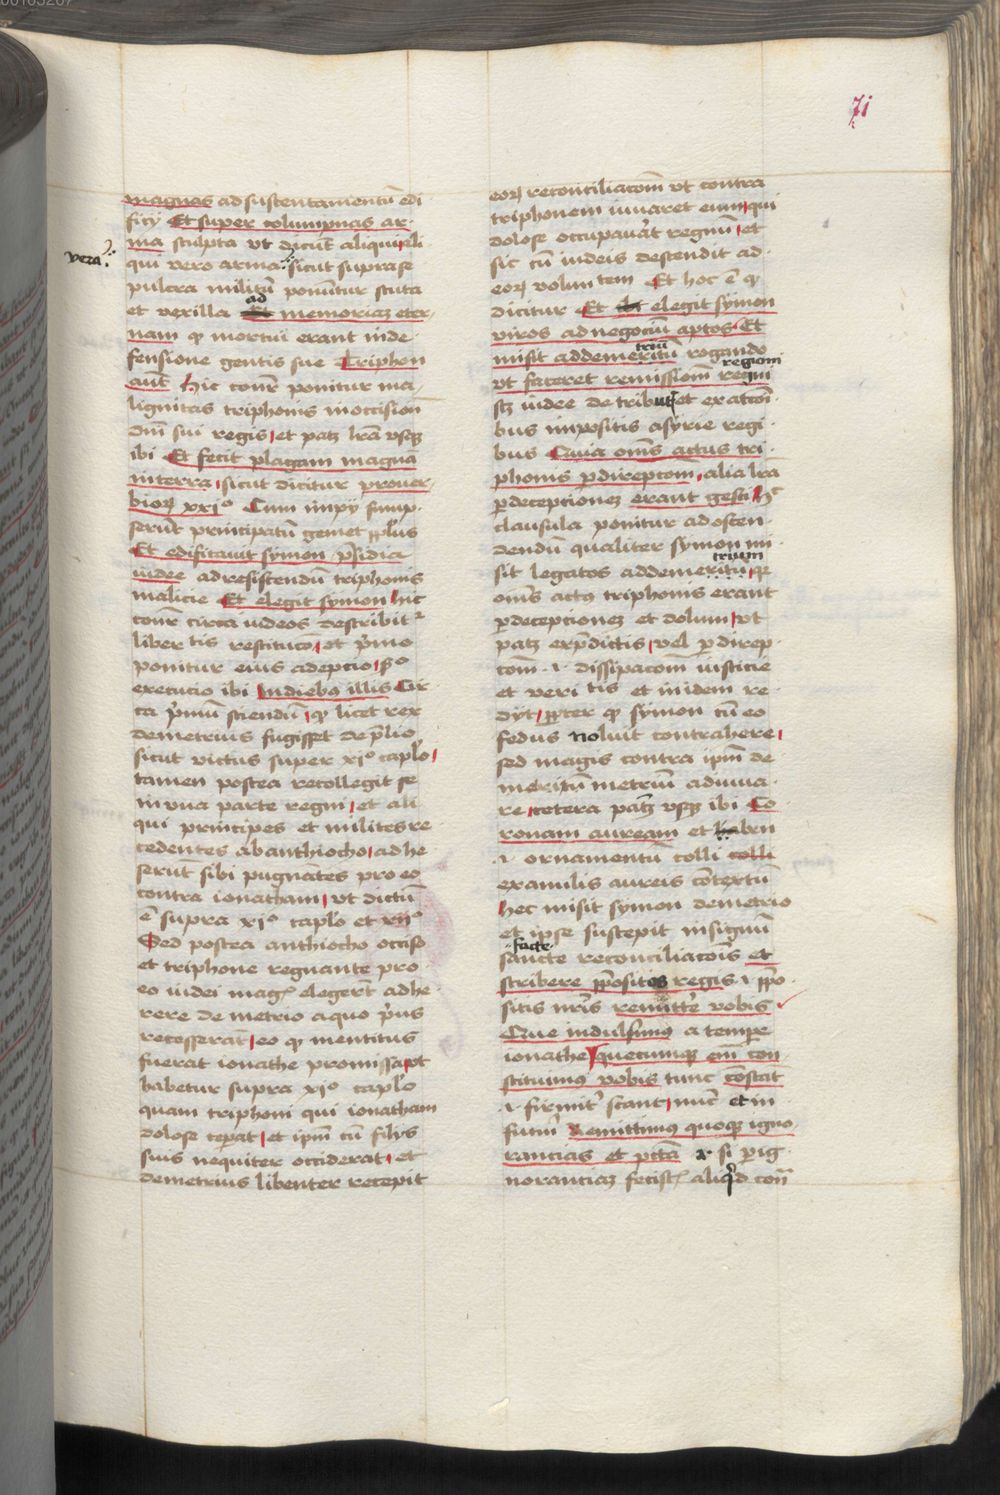 71
magnas ad sustentamentū edi
ficÿ Et super columpnas ar
ma sculpta vt dicūt aliqui illi
vera
qui vero arma sicut supra se
pulcra militū ponūtur scuta
ad
et vexilla memoriaz eter
nam qz mortui erant in de
fensione gentis sue Triphon
aūt hic cōnr̄ ponitur ma
lignitas triphonis in occisiōn
dn̄i sui regis et patz lrā vsqz
ibi Et fecit plagam magnā
in terra sicut dicitur prouer
bioꝝ xxi° Cum impÿ sump
serūt principatū gemet pplus
Et edificauit symon p̄sidia
iudee ad resistendū triphonis
malicie Et elegit symon hic
cōnr̄ circa iudeos describitr
liber tis restitucō et p̄mo
ponitur eius adeptio 2°
executio ibi In diebus illis Cir
ca p̄mū sciendū qz licet rex
demetrius fugisset de p̄lio
sicut victus super xi° caplo
tamen postea recollegit se
in vna parte regni et ali
qui principes et milites re
cedentes ab anthiocho ad he
serūt sibi pugnātes pro eo
contra ionatham vt dictū
ē supra xi° caplo et xii°
Sed postea anthiocho occiso
et triphone regnante pro
eo iudei mag elegerūt adhe
rere de metrio a quo p̄us
recesserāt eo qz mentitus
fuerat ionathe promissa vt
habetur supra xi° caplo
quam triphoni qui ionatham
dolose ceperat et ipm̄ cū filÿs
suis nequiter occiderat et
demetrius libenter recepit
eoꝝ reconciliacōm vt contra
triphonem iuuaret eum qui
dolose occupauāt regnū et
sic cū iudeis descendit ad
eoꝝ volun tem Et hoc ē qz
dicitur Et elegit symon
viros ad negociū aptos Et
triū
misit ad demeritū rogando
regioni
vt faceret remissionm̄ regni
sz iudee de tributis et exaccōi
bus impositis a syrie regi
bus Quia om̄s actus tri
phonis p direptom alia lrā
p deceptionez erant gesti hc
clausula ponitur ad osten
dendū qualiter symon mi
trium
sit legatos ad demeritū qz
om̄s actus triphonis erant
p deceptionez et dolum vt
patz ex p̄dictis vel p direp
com̄ i dissipacom̄ iusticie
et veri tis et in idem re
dÿt ppter qz symon cū eo
fedus noluit contrahere
sed magis contra ipm̄ de
meritū metriū adiuua
re cetera patz vsqz ibi Co
ronam auream et baben
i ornamentū colli colli
ex anulis aureis cōtextū
hec misit symon demetrio
et ipse suscepit in signū
facte
sancte reconciliacōis et
scribere ppositos regis i ppo
sitis nr̄is remittr̄e vobis
Que indulsimus a tempore
ionathe Quecumqz em̄ con
stituimus vobis tunc cōstat
i firmitr̄ stant nūc et in
futur̄ Remittimus quoqz igno
rancias et pctā i si p ig
norantiaz fecist aliqd con̄